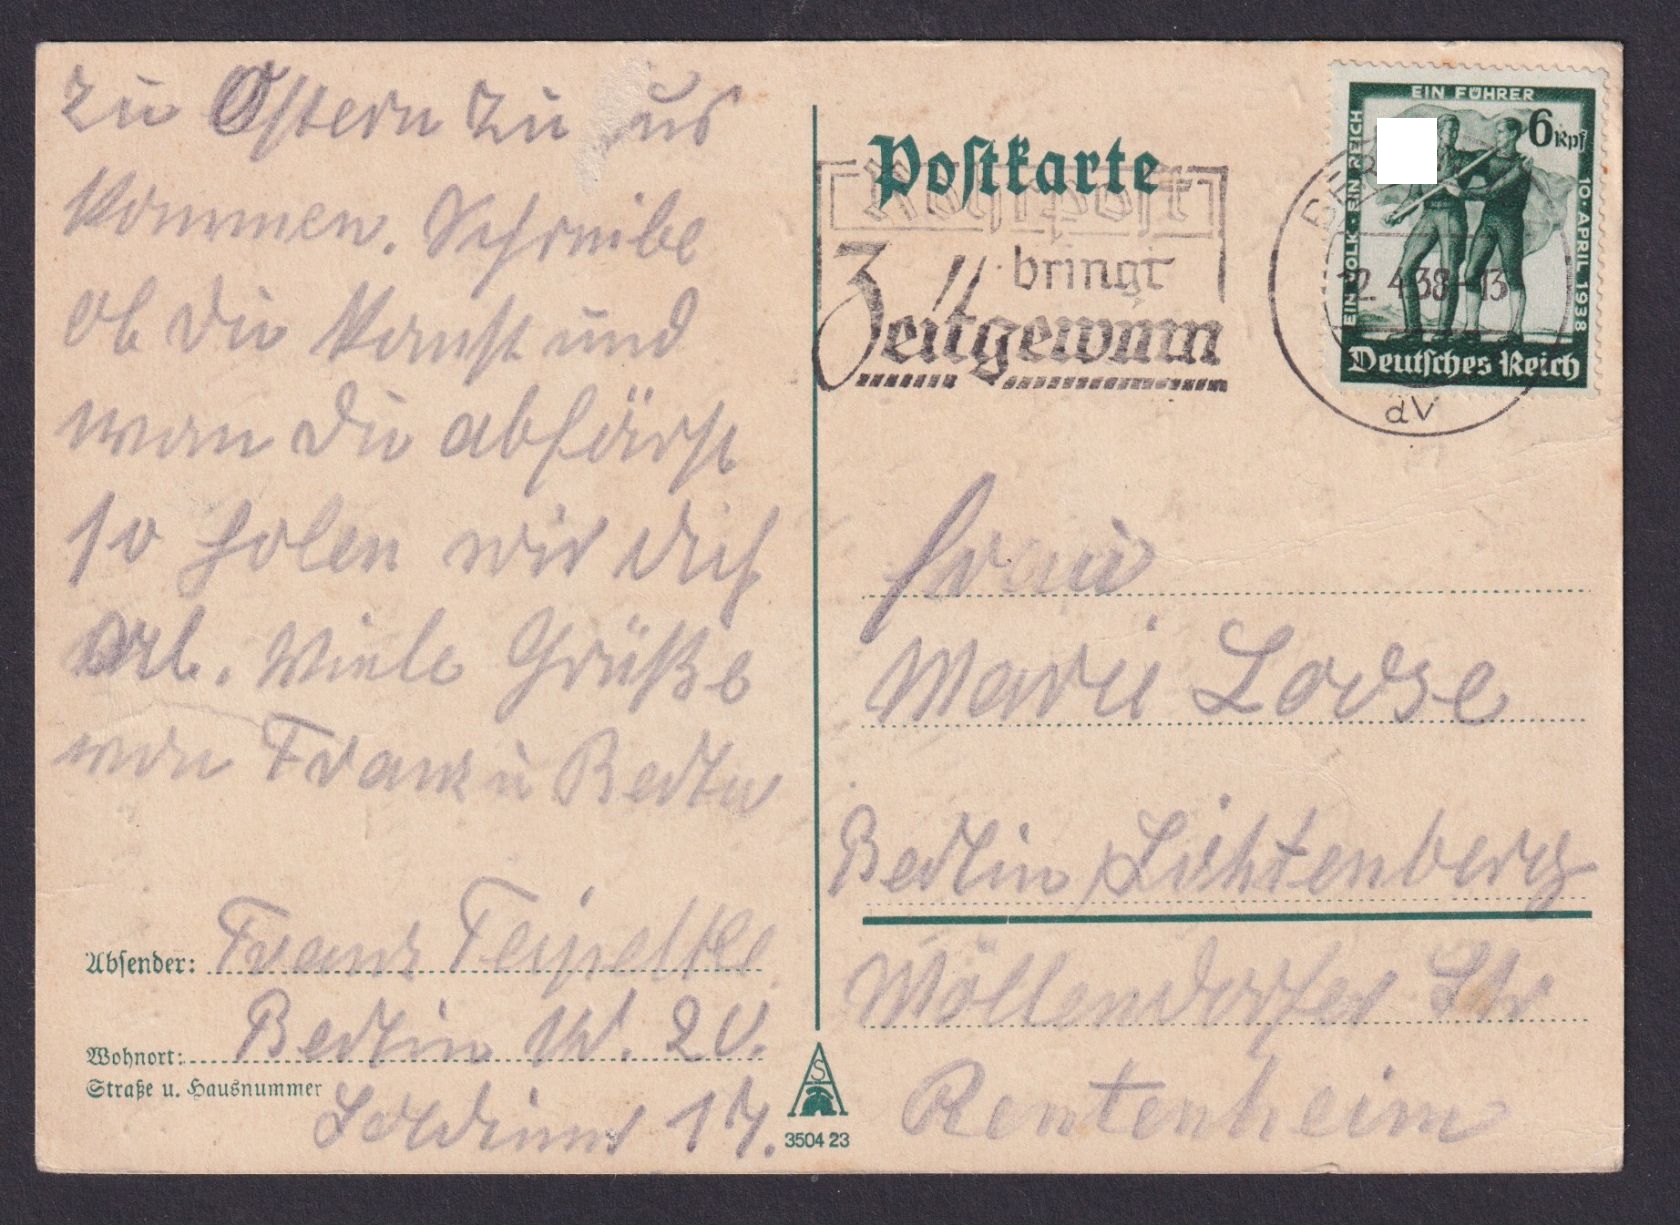 zu Ostern zu uns
kommen. Schreibe
ob du kanst und
wan du abfärst
so holen wir dich
ab. Viele Grüße
von Franz u Berta
Absender: Franz
Wohnort: Berlin N. 20.
Straße u. Hausnummer
Soldiner 17.
350423
Postkarte
Rohrpost
bringt
Zeitgewinn
BER
12.4.38-13
dV
EIN FÜHRER
EIN VOLK · EIN REICH
6 Rpf
10. APRIL 1938
Deutsches Reich
Frau
Marie
Berlin Lichtenberg
Möllendorfer Str
Rentenheim